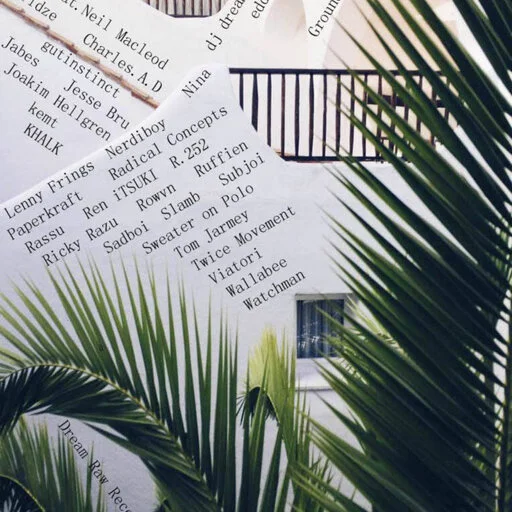 dj
Neil Macleod
Charles.A.D
Jabes gutinstinct
Jesse Bru
Joakim Hellgren
kemt
KHALK
Lenny Frings Nerdiboy Nina
Paperkraft Radical Concepts
Rassu Ren iTSUKI R.252
Ricky Razu Rowvn Ruffien
Sadboi Slamb Subjoi
Sweater on Polo
Tom Jarmey
Twice Movement
Viatori
Wallabee
Watchman
Dream Raw